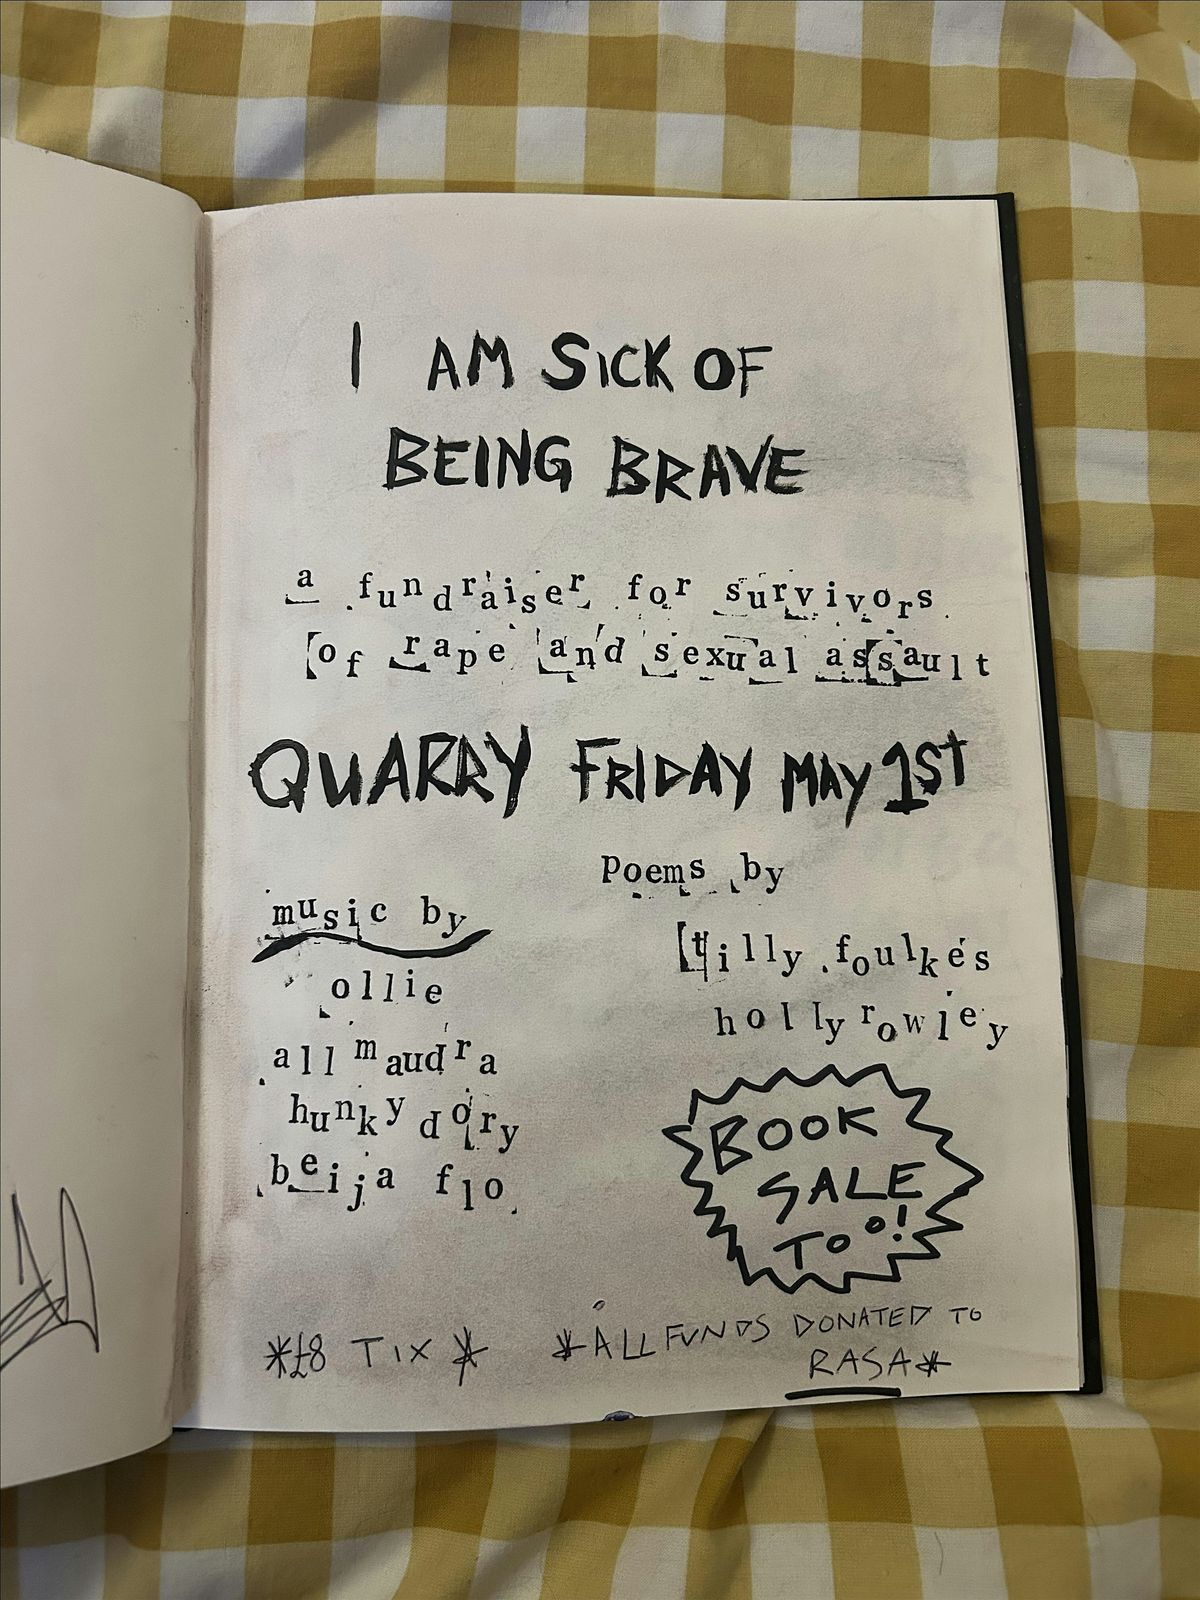 I AM SICK OF
BEING BRAVE
a fundraiser for survivors
of rape and sexual assault
QUARRY FRIDAY MAY 1st
music by
ollie
all maudra
hunky dory
beija flo
poems by
tilly foulkes
holly rowley
BOOK
SALE
TOO!
*£8 TIX*
*ALL FUNDS DONATED TO
RASA*